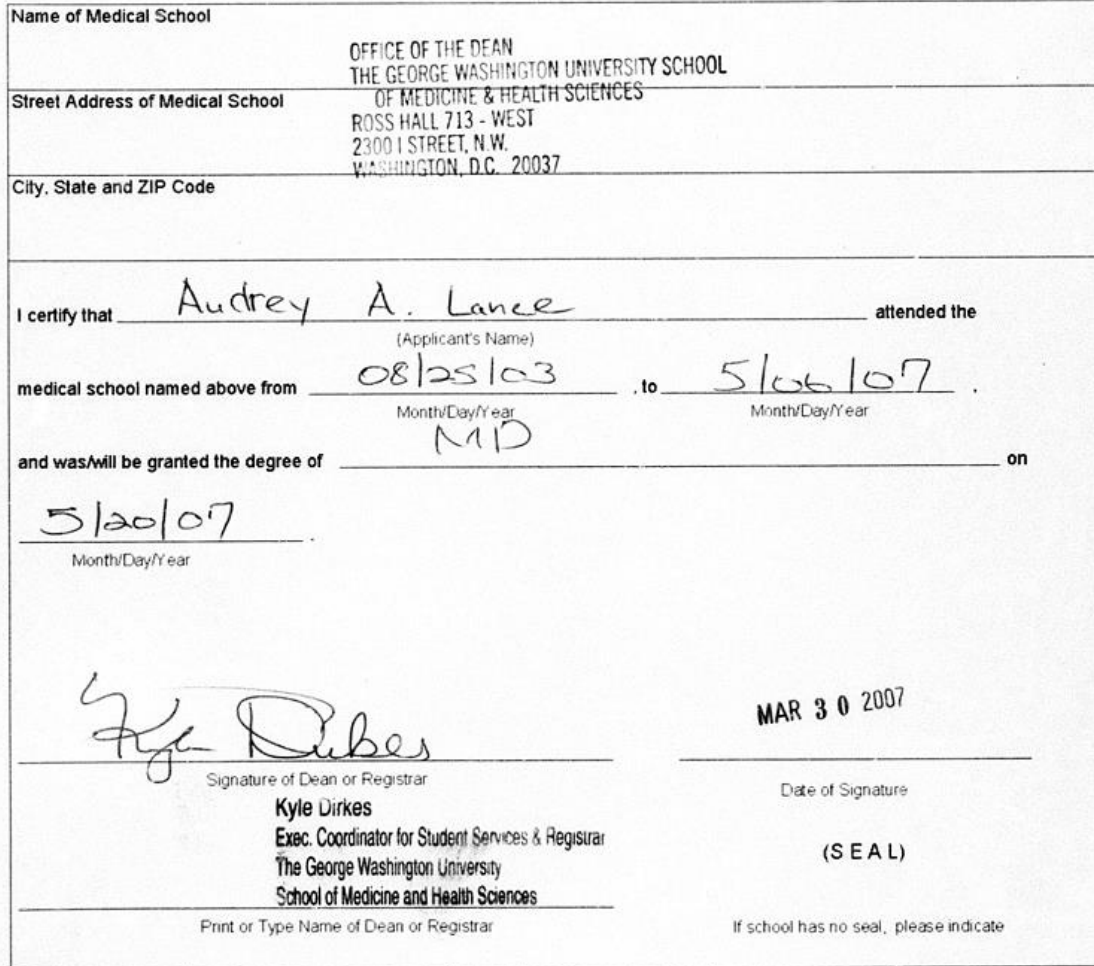 Name of Medical School
OFFICE OF THE DEAN
THE GEORGE WASHINGTON UNIVERSITY SCHOOL
OF MEDICINE & HEALTH SCIENCES
Street Address of Medical School
ROSS HALL 713 - WEST
2300 I STREET, N.W.
WASHINGTON, D.C. 20037
City, State and ZIP Code
I certify that Audrey A. Lance attended the
(Applicant's Name)
medical school named above from 08/25/03 , to 5/06/07 .
Month/Day/Year Month/Day/Year
and was/will be granted the degree of MD on
5/20/07
Month/Day/Year
Kyle Dirkes MAR 30 2007
Signature of Dean or Registrar Date of Signature
Kyle Dirkes
Exec. Coordinator for Student Services & Registrar
The George Washington University (SEAL)
School of Medicine and Health Sciences
Print or Type Name of Dean or Registrar If school has no seal, please indicate